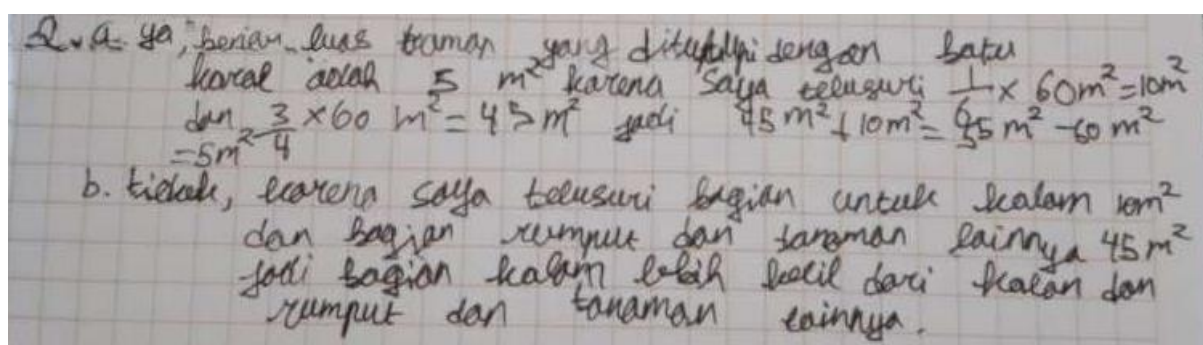 2. a. ya, benar luas taman yang ditutupi dengan batu
koral adlah 5 m² karena saya telusuri 1/6 x 60m²=10m²
dan 3/4 x60 m²= 45m² jadi 45m²+10m²= 55m²-60m²
=5m²
b. tidak, karena saya telusuri bagian untuk kalam 10m²
dan bagian rumput dan tanaman lainnya 45m²
jadi bagian kalam lebih kecil dari kalan dan
rumput dan tanaman lainnya.